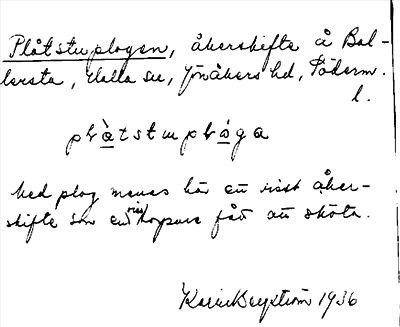 Plåtstuplogen, åkerskifte å Bal-
lersta, Halla sn, Jönåkers hd, Söderm.
l.
plàtstuplóga
Med plog menas här ett visst åker-
skifte som en viss torpare får att sköta.
Karin Bergström 1936